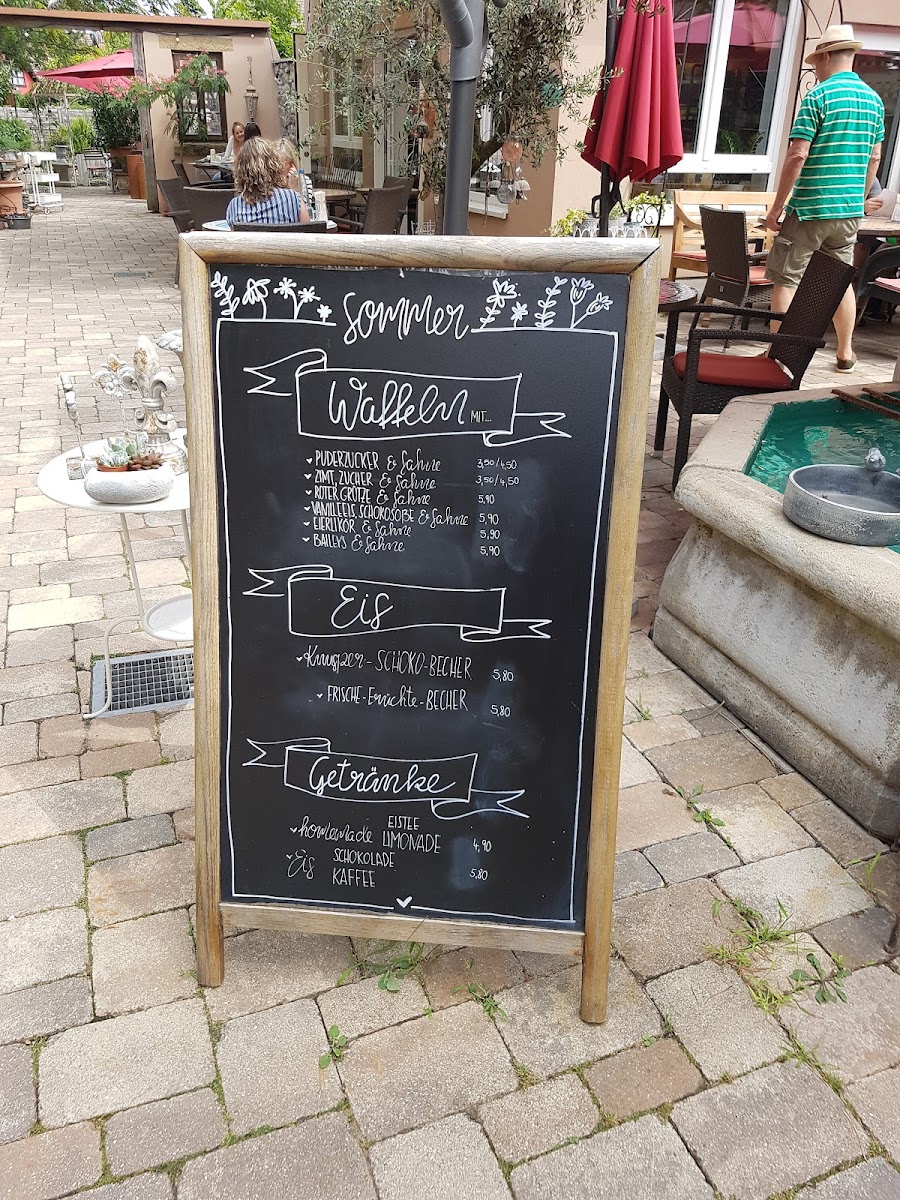 Sommer
Waffeln MIT...
PUDERZUCKER & Sahne 3,50/4,50
ZIMT, ZUCKER & Sahne 3,50/4,50
ROTER GRÜTZE & Sahne 5,90
VANILLEEIS, SCHOKOSOßE & Sahne 5,90
EIERLIKÖR & Sahne 5,90
BAILEYS & Sahne 5,90
Eis
Knusper-SCHOKO-BECHER 5,80
FRISCHE-Früchte-BECHER 5,80
Getränke
homemade EISTEE
LIMONADE 4,90
Eis SCHOKOLADE
KAFFEE 5,80